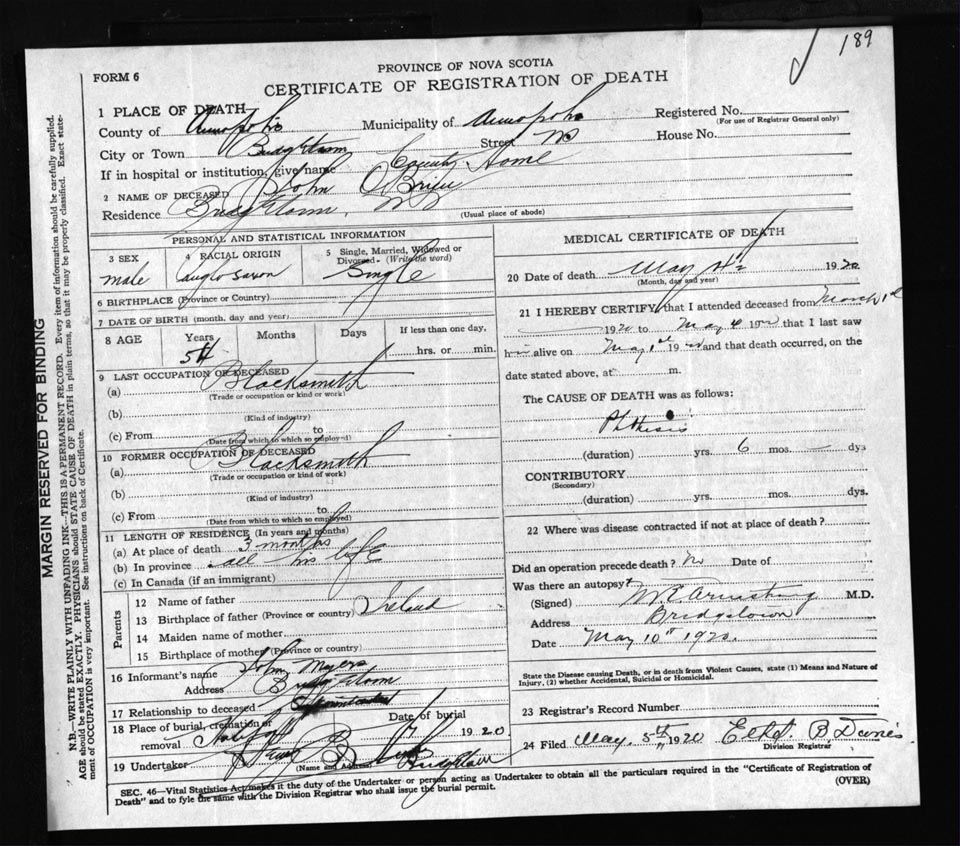 189
PROVINCE OF NOVA SCOTIA
FORM 6
CERTIFICATE OF REGISTRATION OF DEATH
1 PLACE OF DEATH
County of Annapolis Municipality of Annapolis Registered No.
(For use of Registrar General only)
City or Town Bridgetown Street No House No.
If in hospital or institution, give name County Home
2 NAME OF DECEASED John O'Brien
Residence Bridgetown, NS
(Usual place of abode)
PERSONAL AND STATISTICAL INFORMATION
3 SEX 4 RACIAL ORIGIN 5 Single, Married, Widowed or
Divorced. (Write the word)
male anglo saxon Single
6 BIRTHPLACE (Province or Country)
7 DATE OF BIRTH (month, day and year)
8 AGE Years Months Days If less than one day,
54 hrs. or min.
9 LAST OCCUPATION OF DECEASED
(a) Blacksmith
(Trade or occupation or kind or work)
(b)
(Kind of industry)
(c) From to
(Date from which to which so employed)
10 FORMER OCCUPATION OF DECEASED
(a) Blacksmith
(Trade or occupation or kind of work)
(b)
(Kind of industry)
(c) From to
(Date from which to which so employed)
11 LENGTH OF RESIDENCE (In years and months)
(a) At place of death 3 months
(b) In province all his life
(c) In Canada (if an immigrant)
Parents
12 Name of father
13 Birthplace of father (Province or country) Ireland
14 Maiden name of mother
15 Birthplace of mother (Province or country)
16 Informant's name John Myers
Address Bridgetown
17 Relationship to deceased
18 Place of burial, cremation or Date of burial
removal 1920
19 Undertaker
(Name and Address) Bridgetown
MEDICAL CERTIFICATE OF DEATH
20 Date of death May 1920
(Month, day and year)
21 I HEREBY CERTIFY that I attended deceased from March 1st
1920 to May 4 1920 that I last saw
him alive on May 1st 1920 and that death occurred, on the
date stated above, at m.
The CAUSE OF DEATH was as follows:
Phthisis
(duration) yrs. 6 mos. — dys
CONTRIBUTORY
(Secondary)
(duration) yrs. mos. dys.
22 Where was disease contracted if not at place of death?
Did an operation precede death? No Date of
Was there an autopsy?
(Signed) M.E. Armstrong M.D.
Address Bridgetown
Date May 10th 1920.
State the Disease causing Death, or in death from Violent Causes, state (1) Means and Nature of
Injury, (2) whether Accidental, Suicidal or Homicidal.
23 Registrar's Record Number
24 Filed May. 5th 1920
Division Registrar
SEC. 46—Vital Statistics Act makes it the duty of the Undertaker or person acting as Undertaker to obtain all the particulars required in the "Certificate of Registration of
Death" and to fyle the same with the Division Registrar who shall issue the burial permit.
(OVER)
MARGIN RESERVED FOR BINDING
N.B.—WRITE PLAINLY WITH UNFADING INK—THIS IS A PERMANENT RECORD. Every item of information should be carefully supplied.
AGE should be stated EXACTLY. PHYSICIANS should STATE CAUSE OF DEATH in plain terms, so that it may be properly classified. Exact state-
ment of OCCUPATION is very important. See instructions on back of Certificate.